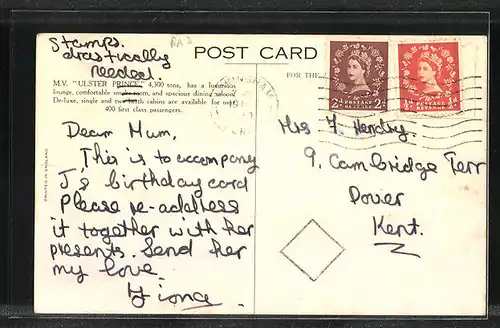 Stamps.
drastically
needed.
POST CARD
M.V. "ULSTER PRINCE" 4,300 tons, has a luxurious
lounge, comfortable smoke room, and spacious dining saloon.
De-luxe, single and two berth cabins are available for over
400 first class passengers.
FOR THE
PRINTED IN ENGLAND
Dear Mum,
This is to accompany
J's birthday card
Please re-address
it together with her
presents. Send her
my love.
2D POSTAGE REVENUE 2D
½D POSTAGE REVENUE ½D
Mrs F. Hendry.
9, Cambridge Terr
Dover
Kent.